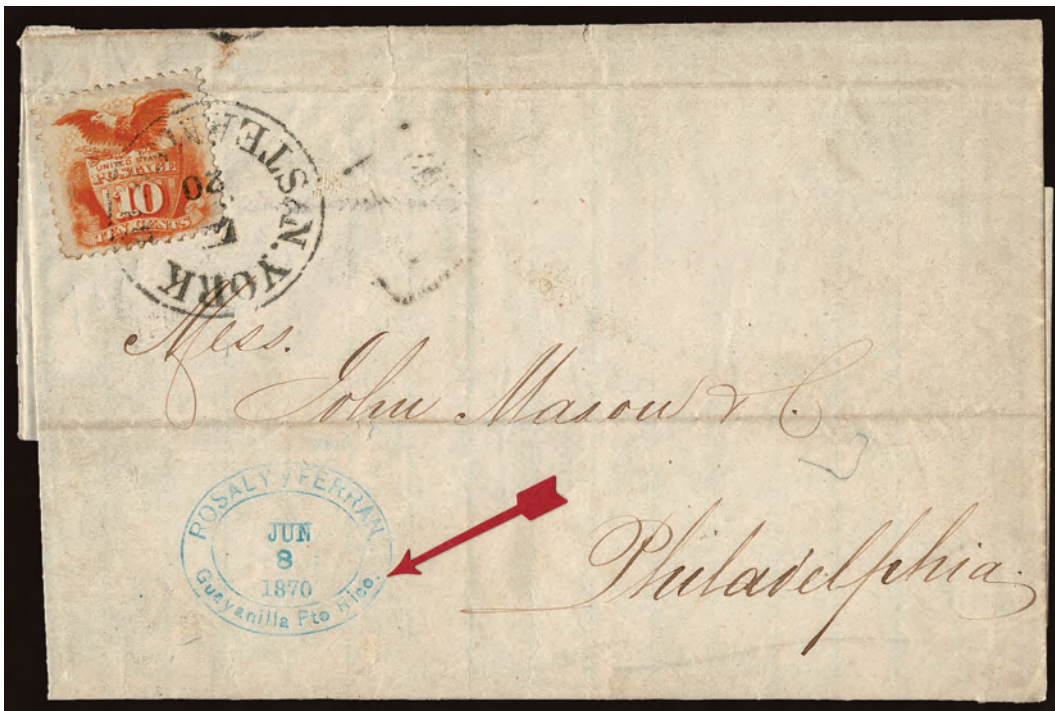 UNITED STATES
POSTAGE
10
TEN CENTS
N. YORK STEAM
20
Mess.
John Mason & C.
Philadelphia.
ROSALY y FERRAN
JUN
8
1870
Guayanilla Pto Rico